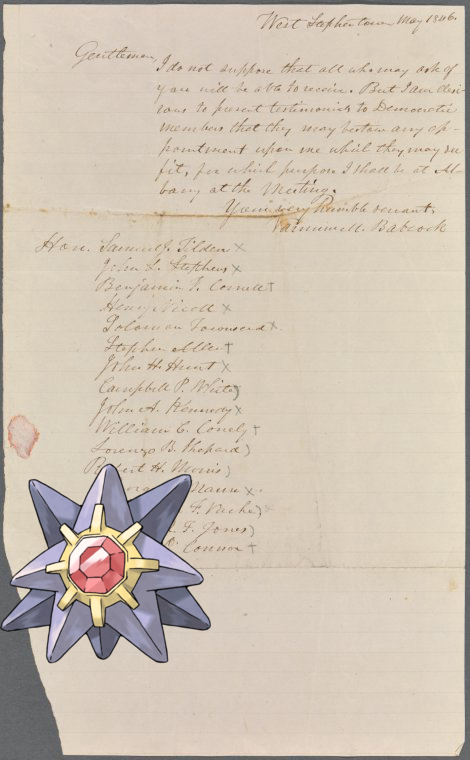 West Stephentown May 1846.
Gentlemen,
I do not suppose that all who may ask of
you will be able to receive. But I am desi-
rous to present testimonies to Democratic
members that they may bestow any ap-
pointment upon me which they may see
fit, for which purpose I shall be at Al-
bany at the Meeting.
Your very Humble servant,
Babcock
Hon. Samuel J. Tilden x
John L. Stephens x
Benjamin F. Cornell †
Henry Nicoll x
Solomon Townsend x
Stephen Allen †
John H. Hunt x
Campbell P. White )
John A. Kennedy x
William C. Conely †
Lorenzo B. Shepard )
Robert H. Morris )
Mann x
F. )
F. Jones )
Connor †